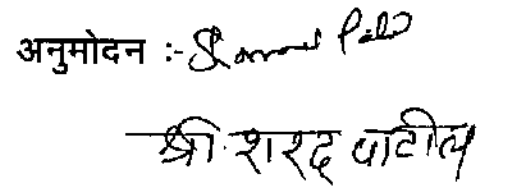 अनुमोदन :-
श्री. शरद पाटील